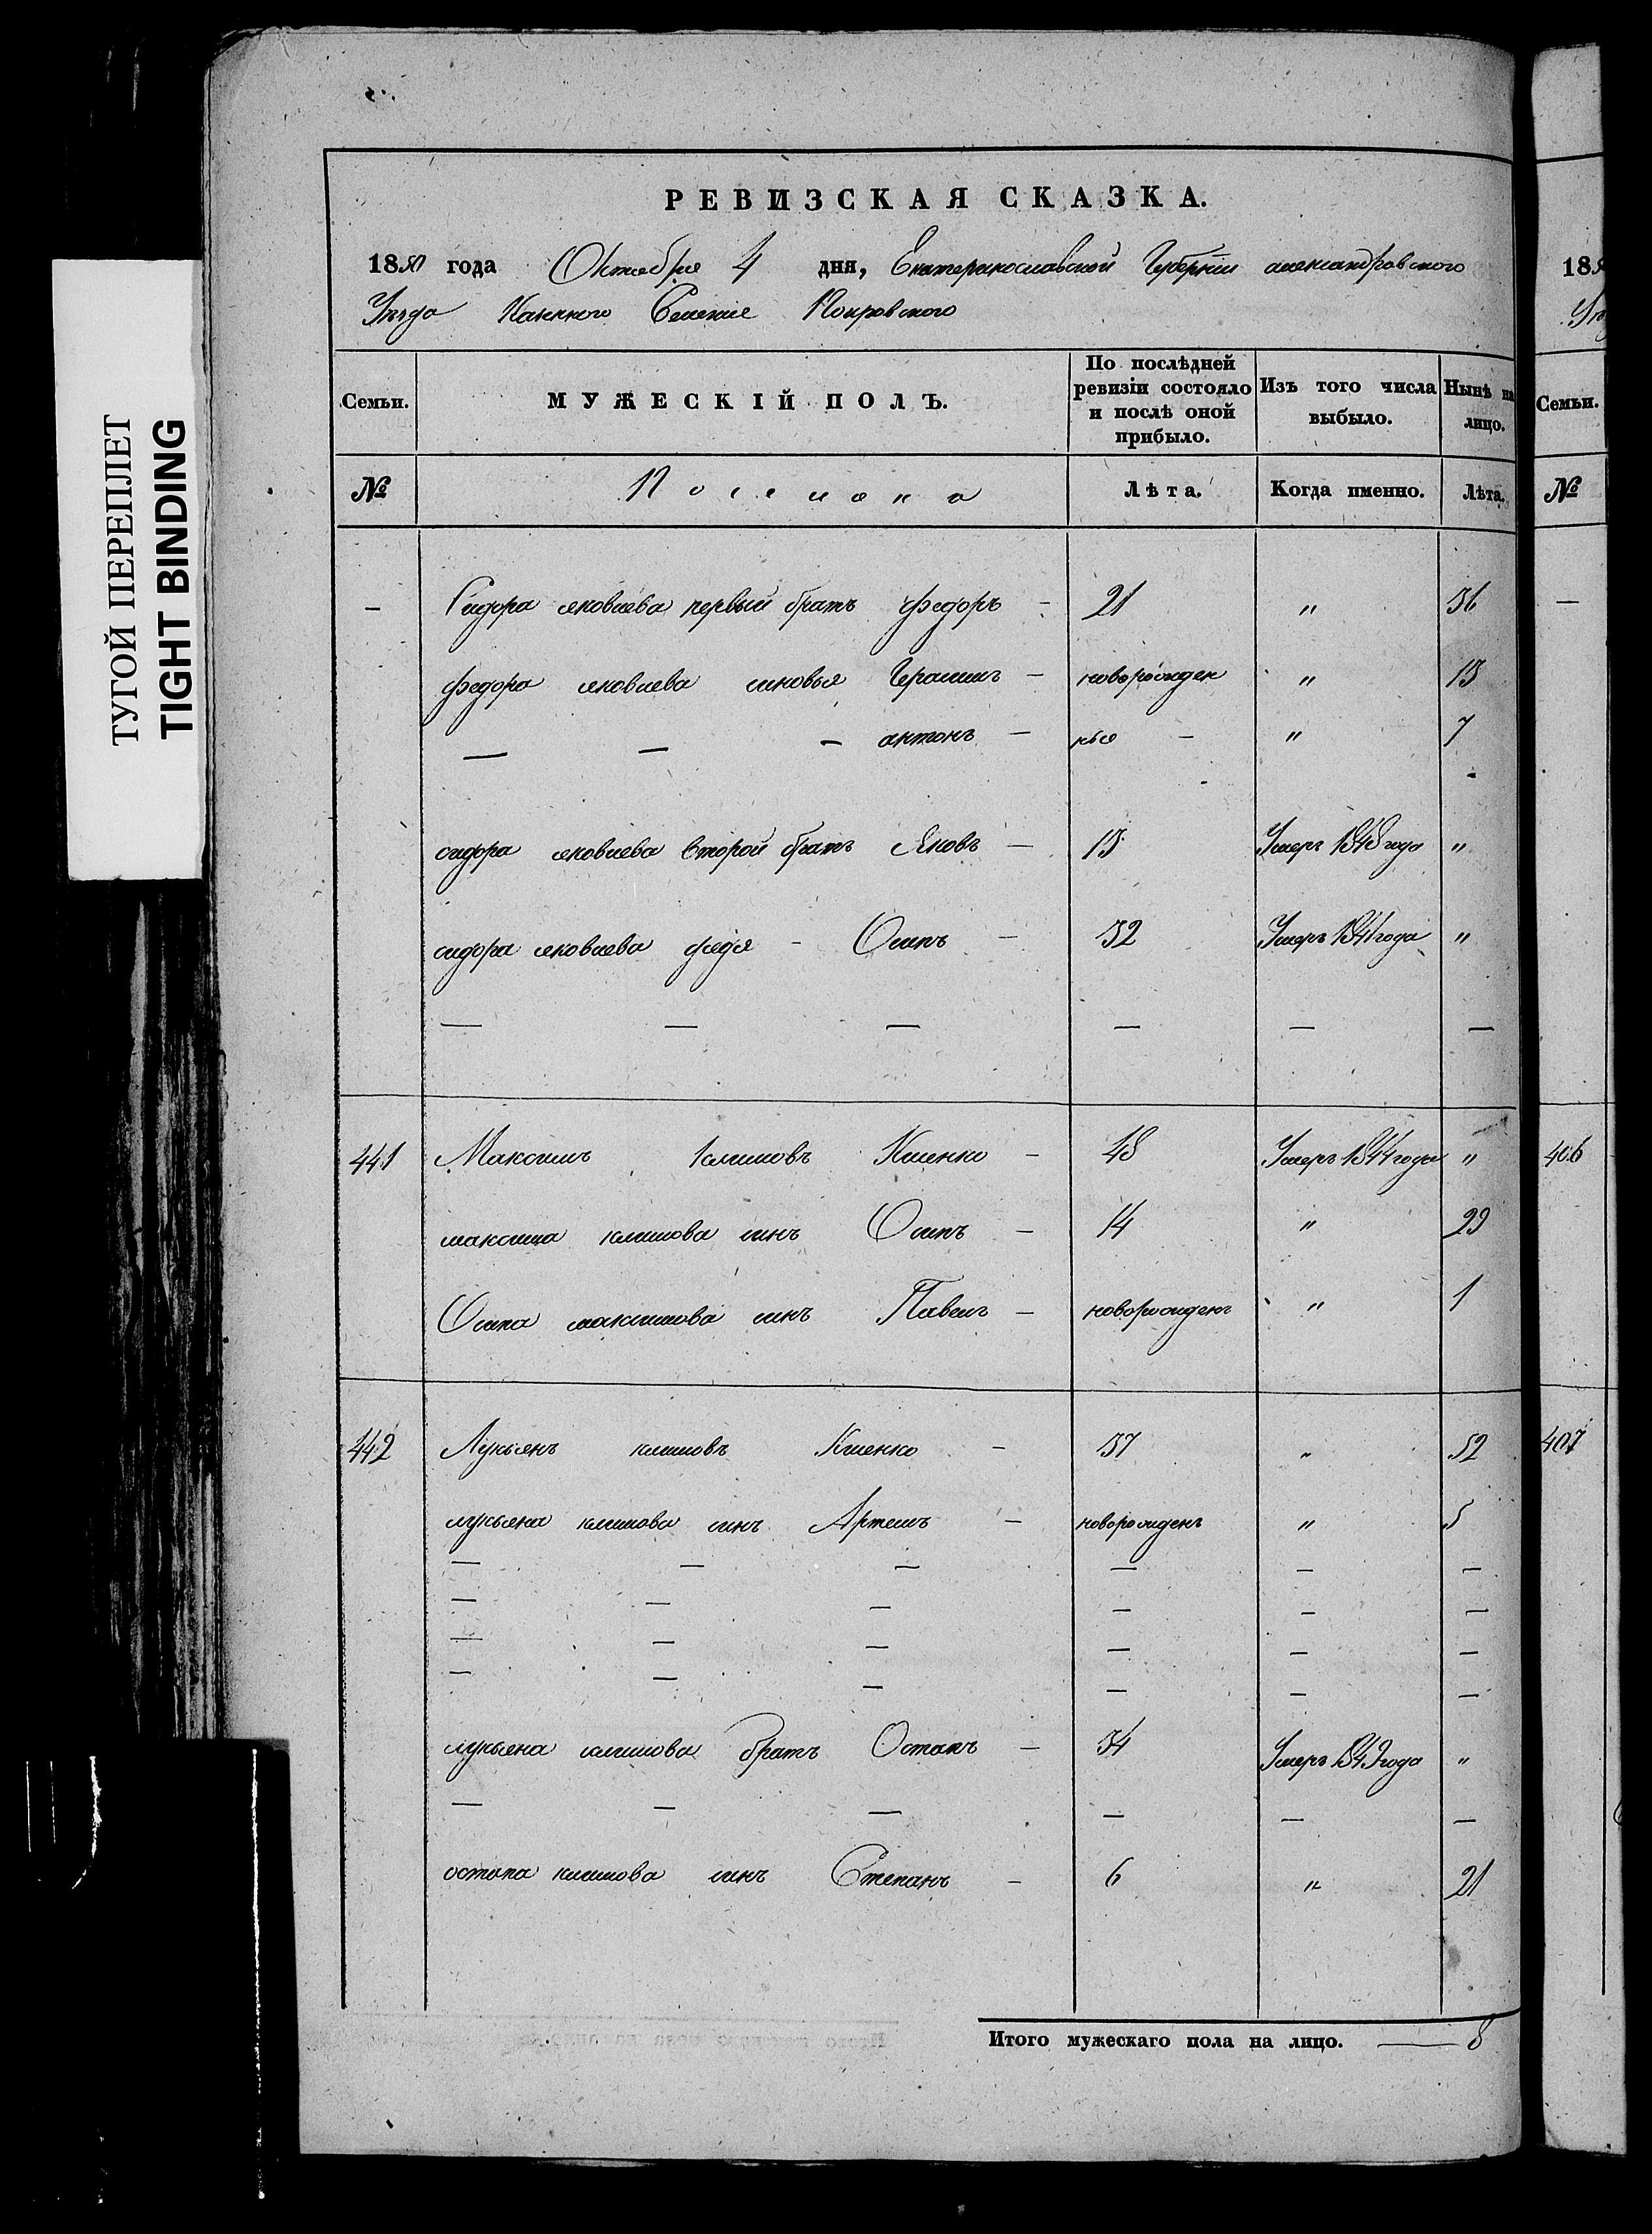 ТУГОЙ ПЕРЕПЛЕТ
TIGHT BINDING
РЕВИЗСКАЯ СКАЗКА.
1850 года Октября 4 дня, Екатеринославской Губерніи александровского
Уезда Казенного Селеніе Покровского
Семьи. МУЖЕСКІЙ ПОЛЪ. По послѣдней ревизіи состояло и послѣ оной прибыло. Изъ того числа выбыло. Нынѣ на лицо.
№ Поселяна Лѣта. Когда именно. Лѣта.
— Сидора яковлева первый братъ федоръ — 21 " 36
федора яковлева сновья Герасимъ — новорожден " 13
— — — антонъ — ные — " 7
сидора яковлева второй братъ Яковъ — 13 Умеръ 1848 года "
сидора яковлева дядя — Осипъ — 52 Умеръ 1841 года "
— — — — — —
441 Максимъ климовъ Кіиенко — 48 Умеръ 1844 года "
максима климова синъ Осипъ — 14 " 29
Осипа максимова синъ Павелъ — новорожденъ " 1
442 Лукьянъ климовъ Кіиенко — 37 " 52
лукьяна климова синъ Артемъ — новорожденъ " 5
— — — — — —
— — — — — —
— — — — — —
— — — — — —
лукьяна климова братъ Остапъ — 34 Умеръ 1849 года "
— — — — — —
остапа климова синъ Степанъ — 6 " 21
Итого мужескаго пола на лицо. — 8
185
Уе
Семьи.
№
—
406
407